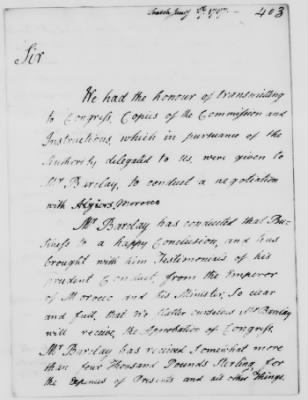 Jany 27th 1787. 403
Sir
We had the honour of transmitting
to Congress, Copies of the Commission and
Instructions, which in pursuance of the
Authority delegated to Us, were given to
Mr Barclay, to conduct a negotiation
with Algiers, Morocco
Mr Barclay has conducted that Bu-
siness to a happy Conclusion, and has
brought with him Testimonials of his
prudent Conduct, from the Emperor
of Morocco and his Minister, so clear
and full, that we flatter ourselves Mr Barclay
will receive the Approbation of Congress.
Mr Barclay has received Somewhat more
than four Thousand Pounds Sterling, for
the Expences of Presents and all other Things.